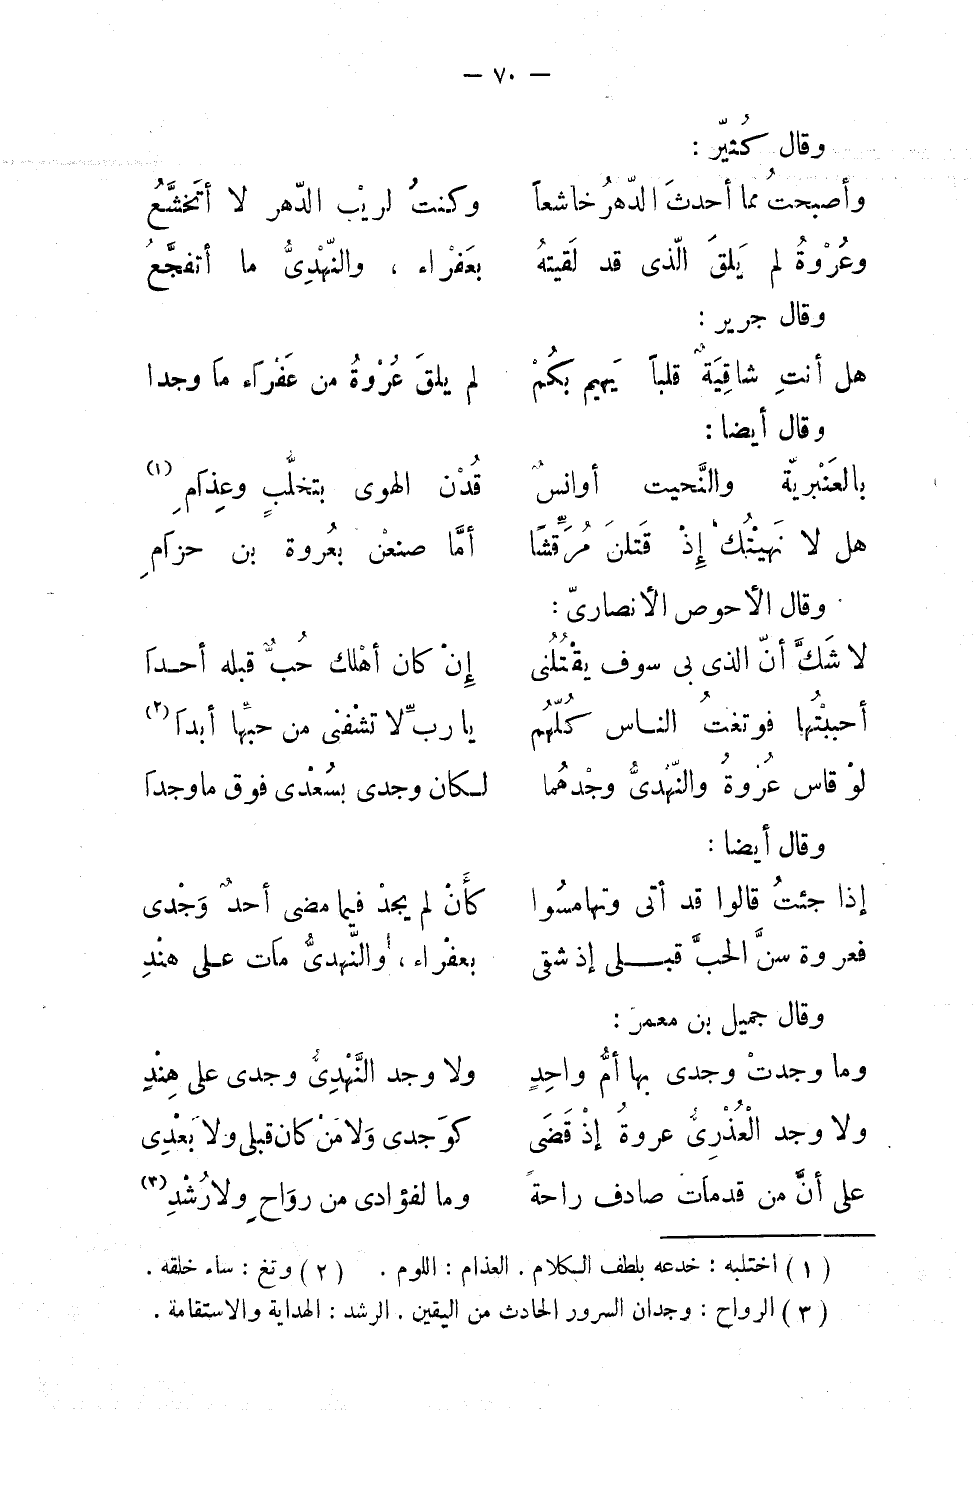 — ٧٠ —
وقال كُثيّر :
وأصبحتُ مما أحدثَ الدّهرُ خاشعاً وكنتُ لريْب الدّهر لا أتَخشَّعُ
وعُرْوةُ لم يَلقَ الّذى قد لَقيتهُ بعَفْراء ، والنّهْدِىُّ ما أتفجَّعُ
وقال جرير :
هل أنتِ شاقِيَةٌ قلباً يَهيم بكُمْ لم يلقَ عُرْوةُ من عَفْرَاء مَا وجدا
وقال أيضا :
بالعَنْبريّة والنَّحيت أوانسٌ قُدْن الهوى بتخلُّبٍ وعِذَامِ (١)
هل لا نَهيْتُكْ إِذْ قَتلنَ مُرَقِّشًا أمَّا صنعْن بعُروة بن حزامِ
وقال الأحوص الأنصارىّ :
لا شَكَّ أنّ الذى بى سوف يقْتُلُنى إِنْ كان أهْلك حُبٌّ قبله أحدَا
أحببْتُها فوتغتُ الناس كُلّهُم يا ربّ لا تشْفنى من حبّها أبدَا (٢)
لوْ قاس عُرْوةُ والنّهْدىُّ وجْدهُما لكان وجدى بسُعْدى فوق ما وجدَا
وقال أيضا :
إذا جئتُ قالوا قد أتى وتهامسُوا كأَنْ لم يجدْ فيما مضى أحدٌ وَجْدى
فعروة سنَّ الحبَّ قبلى إذ شقى بعفْراء ، والنّهدىُّ مات على هنْدِ
وقال جميل بن معمر :
وما وجدتْ وجدى بها أمُّ واحِدٍ ولا وجد النَّهْدِىُّ وجدى على هِنْدِ
ولا وجد الْعُذْرِىُّ عروةُ إذْ قَضَى كوَجدى وَلا مَنْ كان قبلى ولا بَعْدِى
على أنَّ من قد مات صادف راحةً وما لفؤادى من روَاحٍ ولا رُشْدِ (٣)
( ١ ) اختلبه : خدعه بلطف الكلام . العذام : اللوم . ( ٢ ) وتغ : ساء خلقه .
( ٣ ) الرواح : وجدان السرور الحادث من اليقين . الرشد : الهداية والاستقامة .